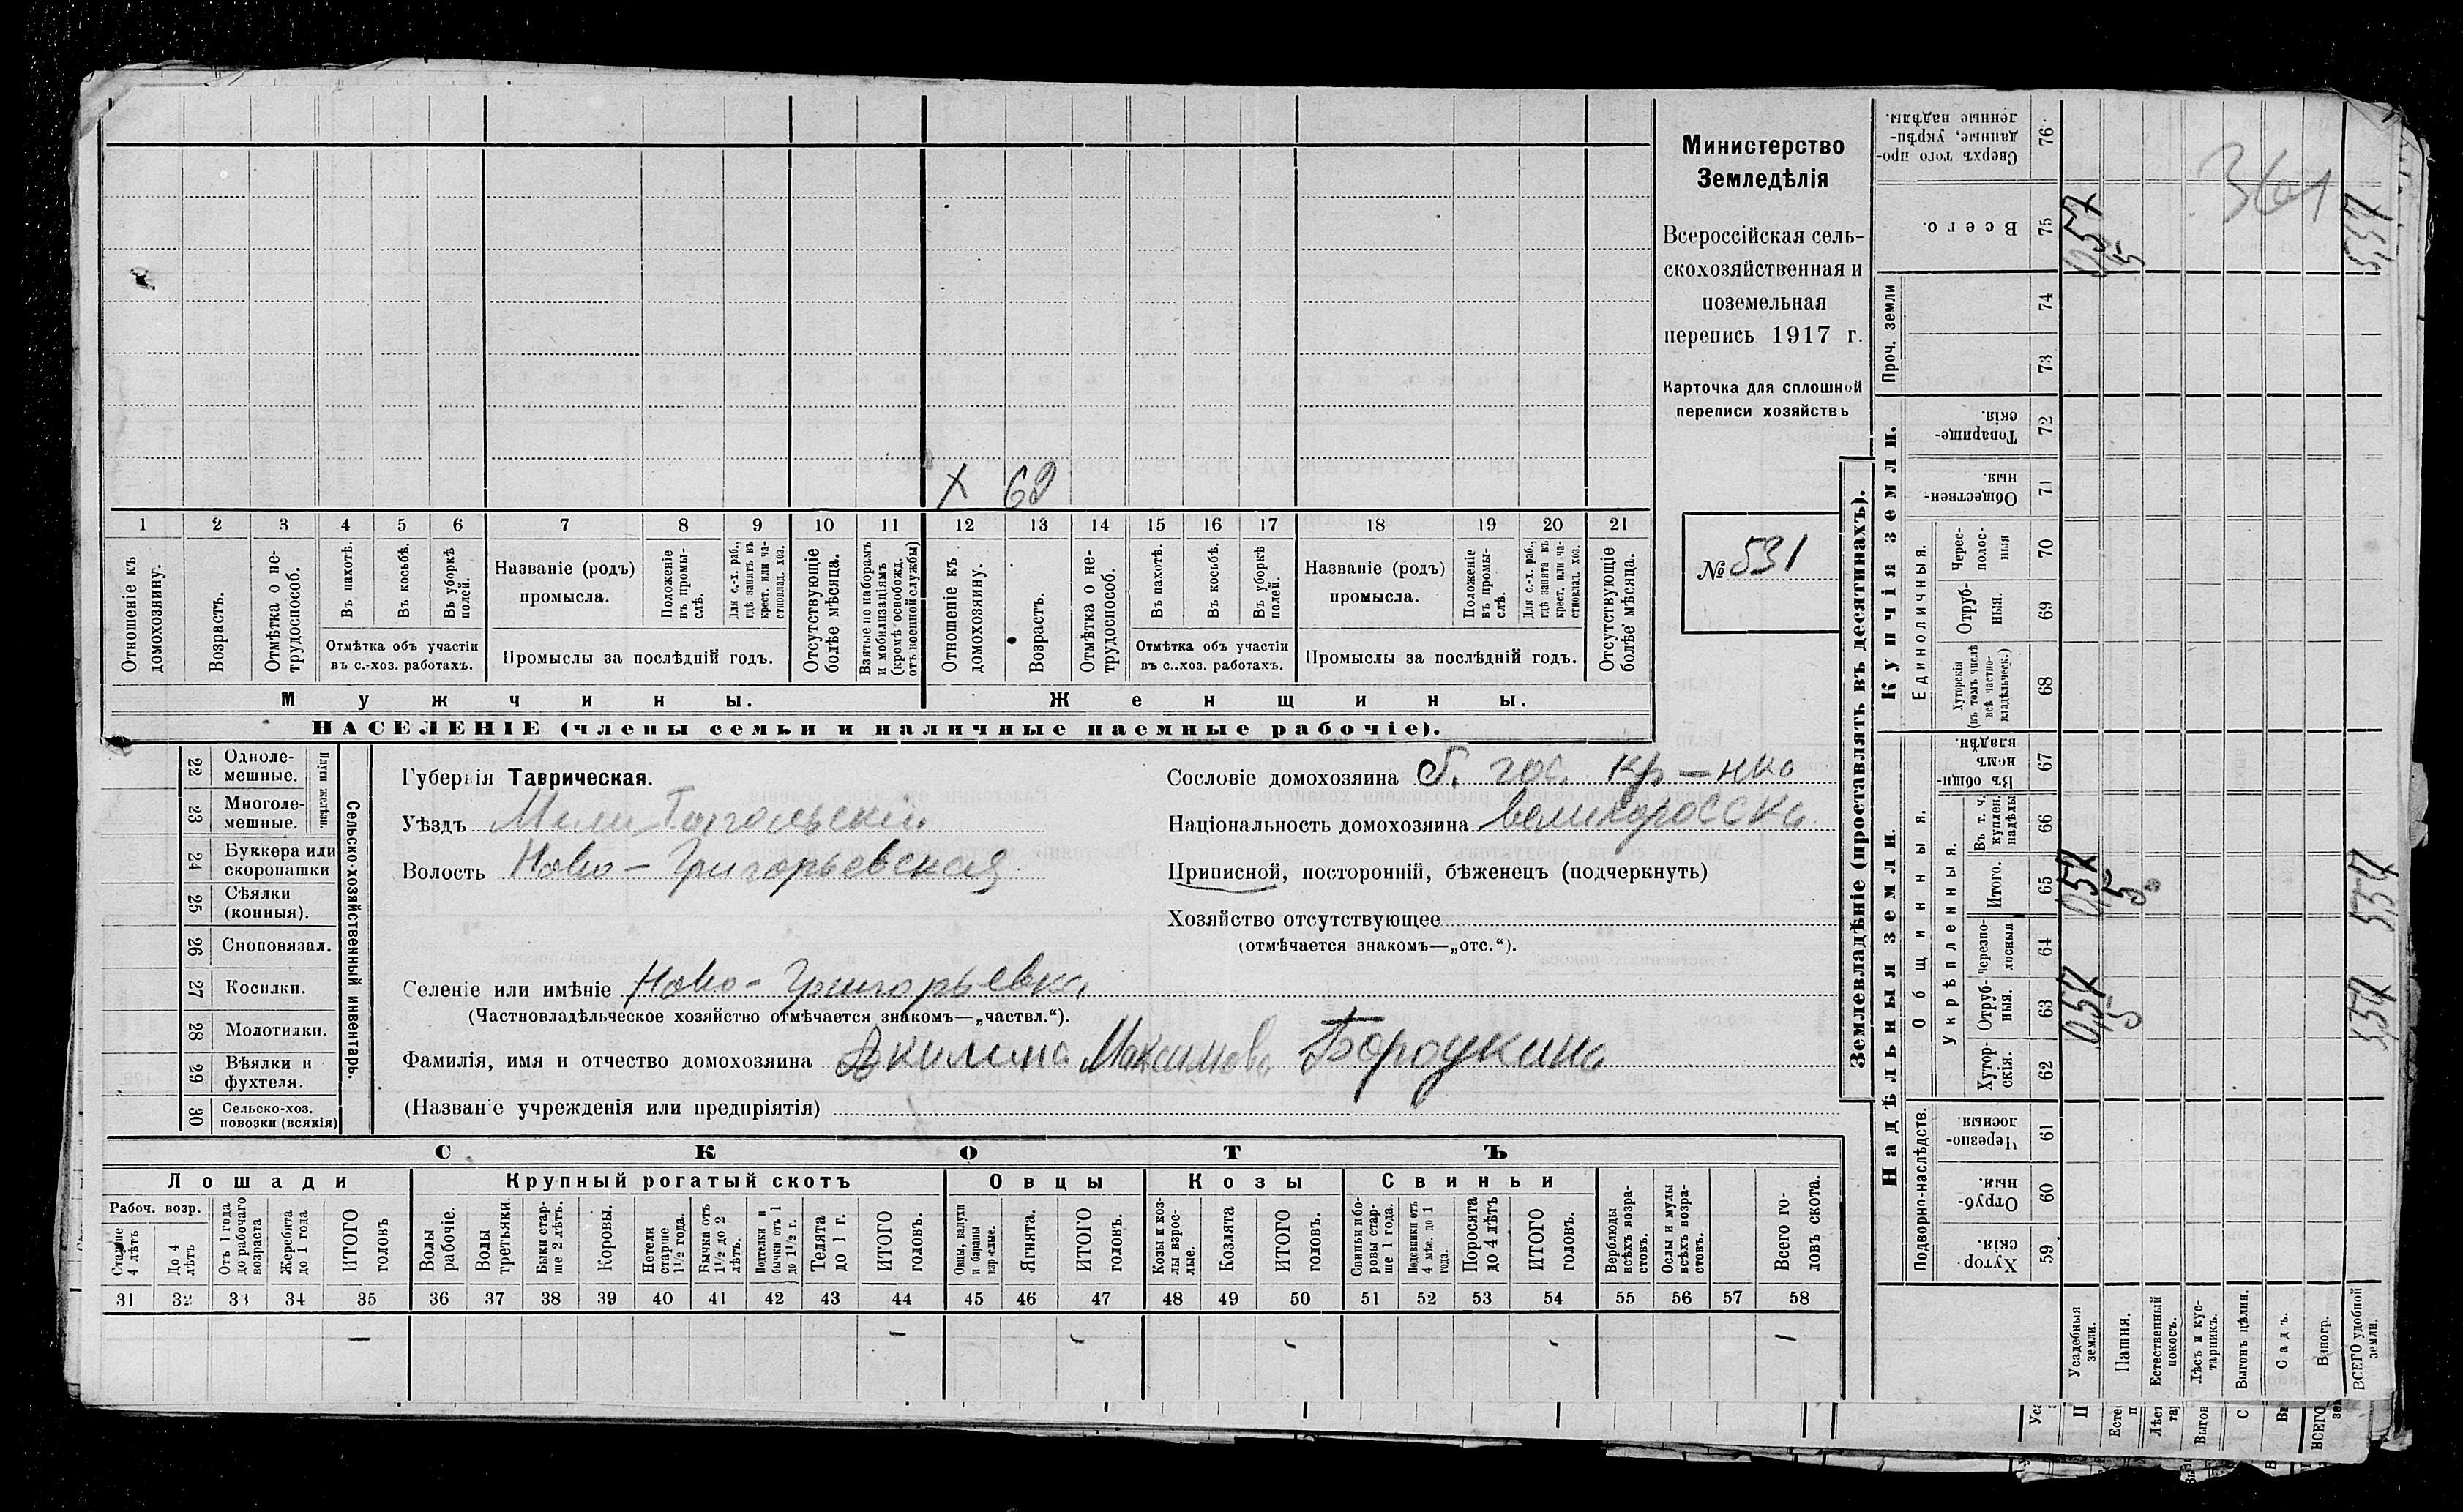 Министерство
Земледѣлія
Всероссійская сель-
скохозяйственная и
поземельная
перепись 1917 г.
Карточка для сплошной
переписи хозяйствъ
№ 531
361
X 62
1 2 3 4 5 6 7 8 9 10 11 12 13 14 15 16 17 18 19 20 21
Отношеніе къ домохозяину.
Возрастъ.
Отмѣтка о не-трудоспособ.
Въ пахотѣ.
Въ косьбѣ.
Въ уборкѣ полей.
Отмѣтка объ участіи
въ с.-хоз. работахъ.
Названіе (родъ)
промысла.
Положеніе въ промы-слѣ.
Для с.-х. раб., гдѣ занятъ въ крест. или ча-стновлад. хоз.
Промыслы за послѣдній годъ.
Отсутствующіе болѣе мѣсяца.
Взятые по наборамъ и мобилизаціямъ (кромѣ освобожд. отъ военной службы)
Отношеніе къ домохозяину.
Возрастъ.
Отмѣтка о не-трудоспособ.
Въ пахотѣ.
Въ косьбѣ.
Въ уборкѣ полей.
Отмѣтка объ участіи
въ с.-хоз. работахъ.
Названіе (родъ)
промысла.
Положеніе въ промы-слѣ.
Для с.-х. раб., гдѣ занята въ крест. или ча-стновлад. хоз.
Промыслы за послѣдній годъ.
Отсутствующіе болѣе мѣсяца.
Мужчины. Женщины.
НАСЕЛЕНІЕ (члены семьи и наличные наемные рабочіе).
Сельско-хозяйственный инвентарь.
Плуги желѣзн.
22 Одноле-мешные.
23 Многоле-мешные.
24 Буккера или скоропашки
25 Сѣялки (конныя).
26 Сноповязал.
27 Косилки.
28 Молотилки.
29 Вѣялки и фухтеля.
30 Сельско-хоз. повозки (всякія)
Губернія Таврическая.
Уѣздъ Мелитопольскій
Волость Ново-Григорьевская
Сословіе домохозяина б. гос. кр-нка
Національность домохозяина великоросска
Приписной, посторонній, бѣженецъ (подчеркнуть)
Хозяйство отсутствующее
(отмѣчается знакомъ—„отс.“).
Селеніе или имѣніе Ново-Григорьевка
(Частновладѣльческое хозяйство отмѣчается знакомъ—„частвл.“).
Фамилія, имя и отчество домохозяина Акилина Максимова Бородкина
(Названіе учрежденія или предпріятія)
СКОТЪ
Лошади Крупный рогатый скотъ Овцы Козы Свиньи
Рабоч. возр.
Старше 4 лѣтъ
До 4 лѣтъ
Отъ 1 года до рабочаго возраста
Жеребята до 1 года
ИТОГО головъ
Волы рабочіе.
Волы третьяки.
Быки стар-ше 2 лѣтъ.
Коровы.
Нетели старше 1½ года.
Бычки отъ 1½ до 2 лѣтъ.
Подтелки и бычки отъ 1 до 1½ г.
Телята до 1 г.
ИТОГО головъ.
Овцы, валухи и бараны взрослые.
Ягнята.
ИТОГО головъ.
Козы и коз-лы взрос-лые.
Козлята
ИТОГО головъ.
Свиньи и бо-ровы стар-ше 1 года.
Подсвинки отъ 4 мѣс. до 1 года.
Поросята до 4 лѣтъ
ИТОГО головъ.
Верблюды всѣхъ возра-стовъ.
Ослы и мулы всѣхъ возра-стовъ.
Всего го-ловъ скота.
31 32 33 34 35 36 37 38 39 40 41 42 43 44 45 46 47 48 49 50 51 52 53 54 55 56 57 58
– – – – – –
Землевладѣніе (проставлять въ десятинахъ).
Надѣльныя земли. Купчія земли. Проч. земли
Подворно-наслѣдств.
Общинныя.
Укрѣпленныя.
Единоличныя.
59 Хутор-скія.
60 Отруб-ныя.
61 Черезпо-лосныя.
62 Хутор-скія.
63 Отруб-ныя.
64 Черезпо-лосныя
65 Итого.
66 Въ т. ч. куплен. надѣлы
67 Въ общи-номъ владѣн.
68 Хуторскія (въ томъ числѣ всѣ частно-владѣльческ.)
69 Отруб-ныя.
70 Черес-полос-ныя
71 Обществен-ныя.
72 Товарище-скія.
73
74
75 Всего.
76 Сверхъ того про-данные, укрѣп-ленные надѣлы.
Усадебныя земли. 0,57 0,57 0,57
Пашня. 5 5 5
Естественный покосъ.
Лѣсъ и кус-тарникъ.
Выгонъ цѣлин.
Садъ.
Виногр.
ВСЕГО удобной земли. 5,57 5,57 5,57